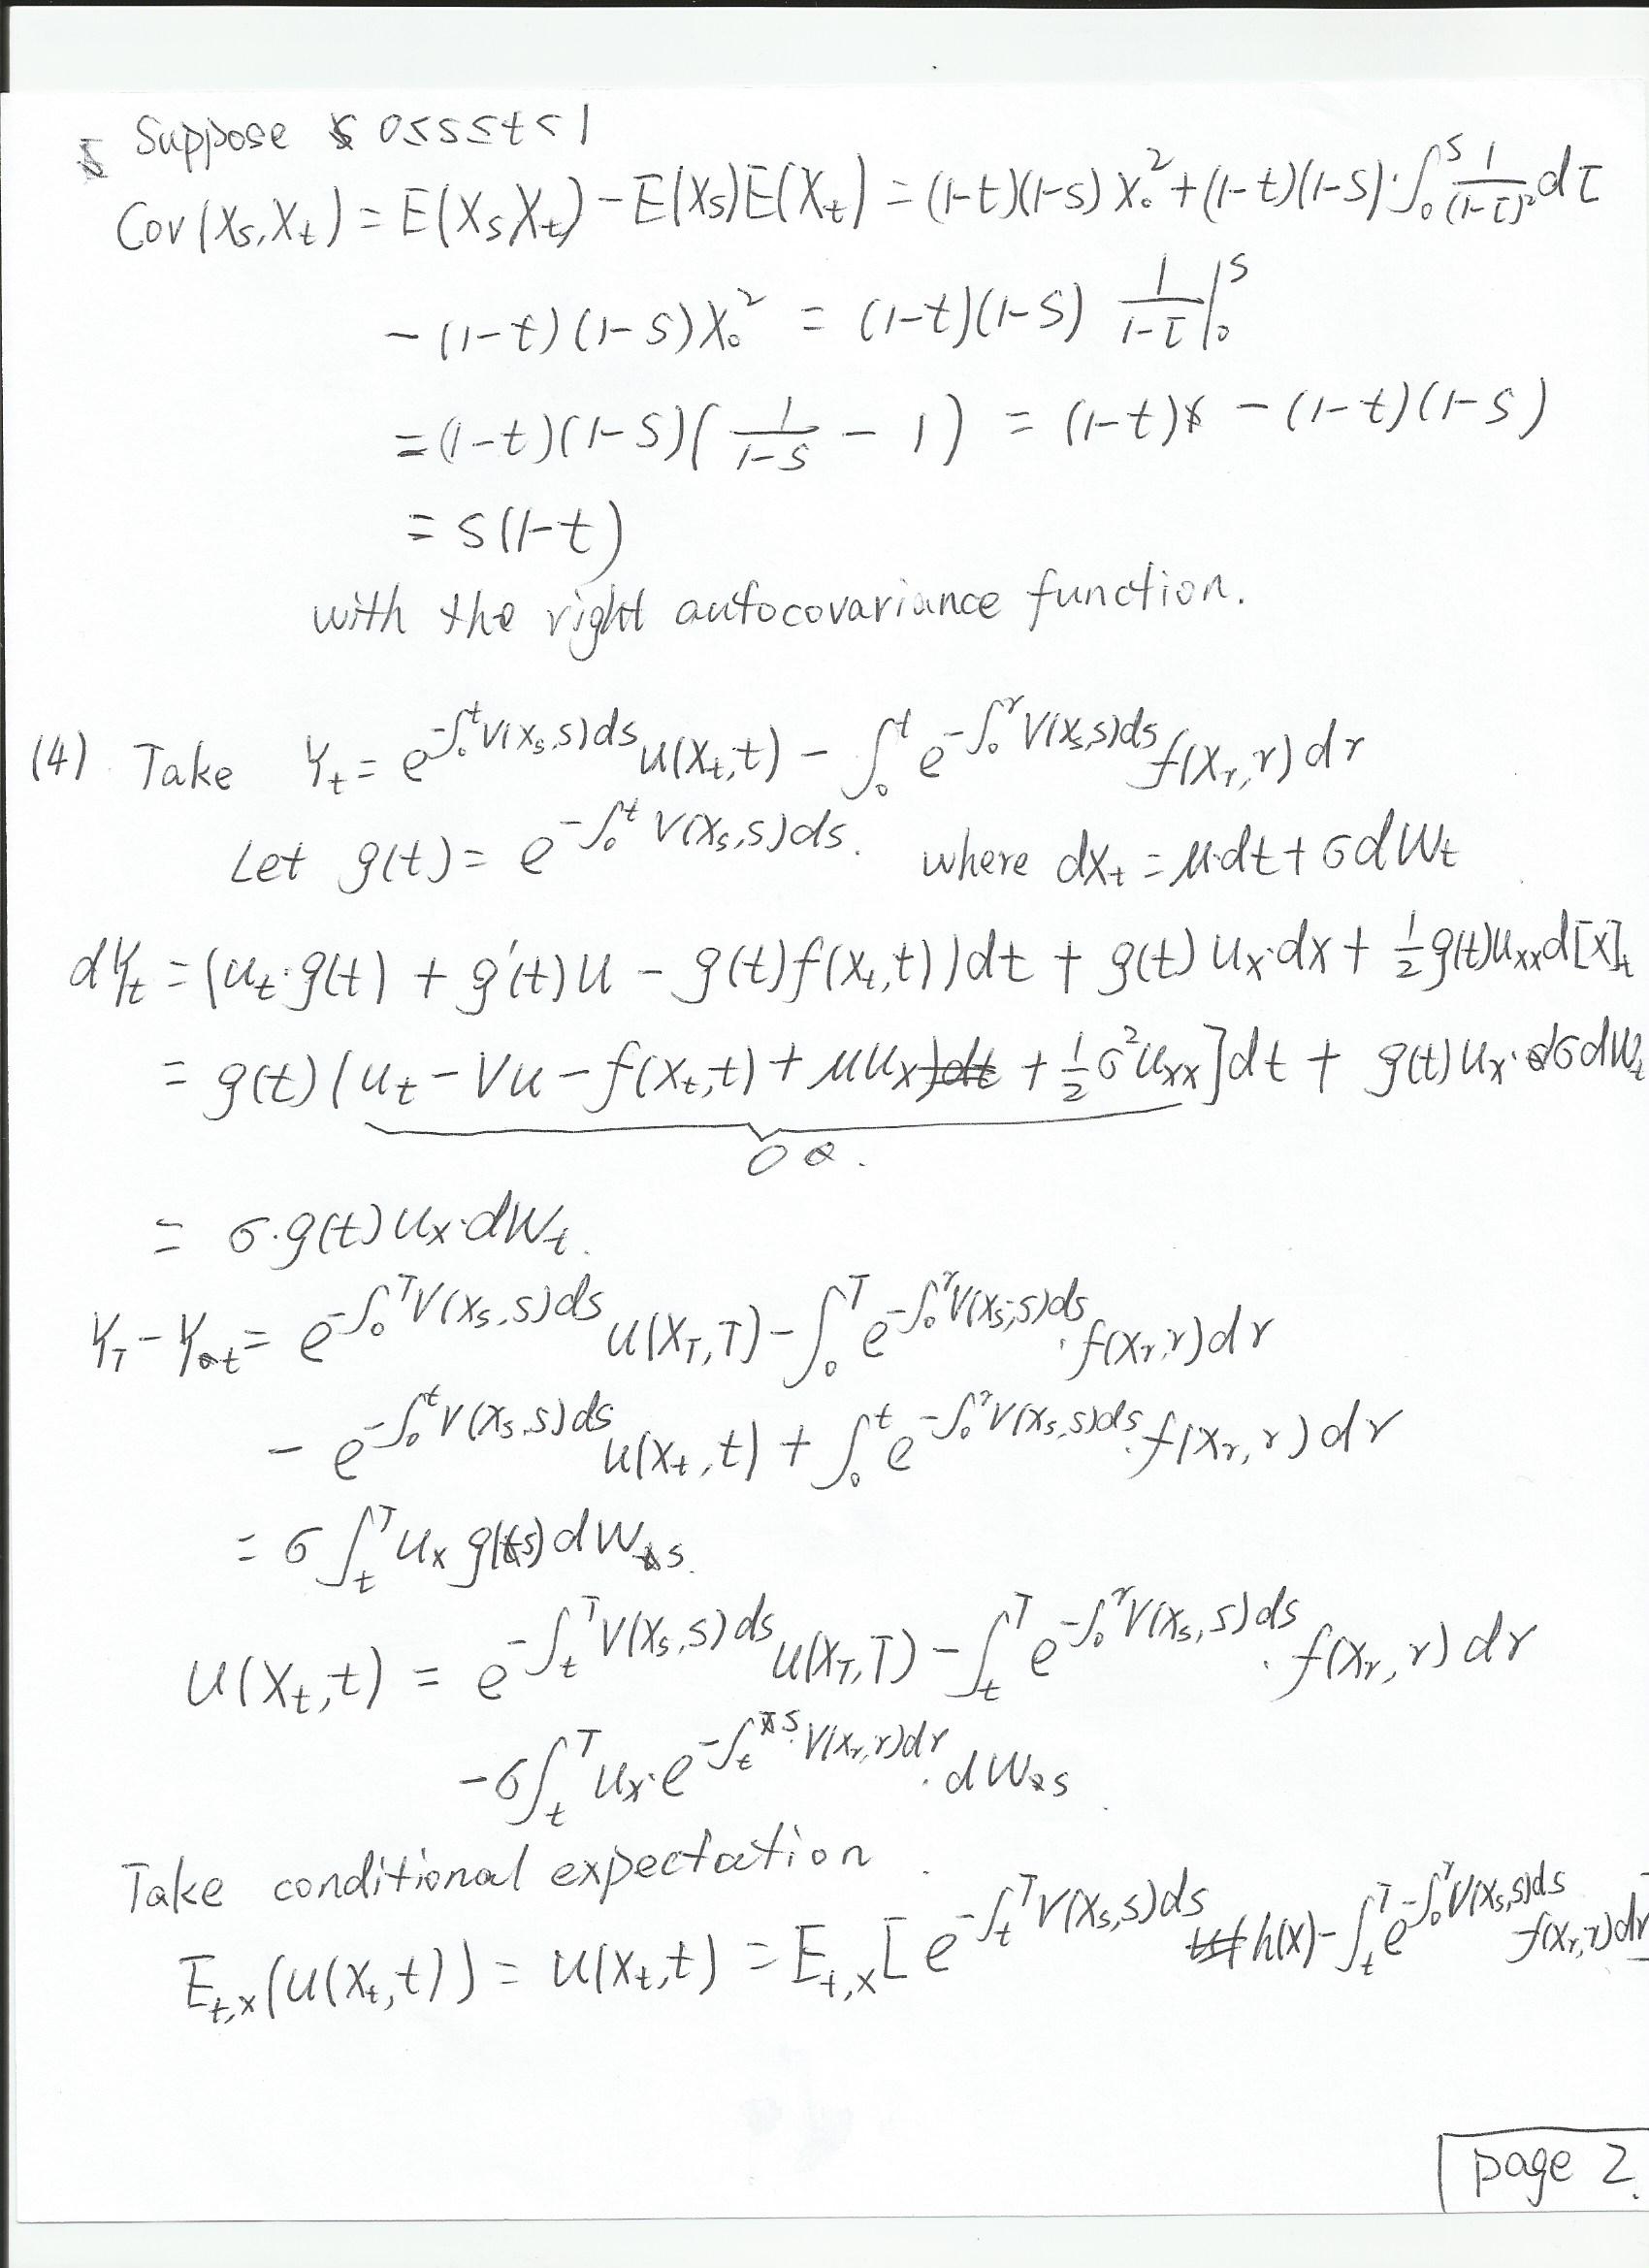 Suppose 0≤s≤t<1
Cov(Xs,Xt) = E(XsXt) - E(Xs)E(Xt) = (1-t)(1-s) X₀² + (1-t)(1-s)·∫₀ˢ 1/(1-τ)² dτ
- (1-t)(1-s)X₀² = (1-t)(1-s) 1/(1-τ) |₀ˢ
= (1-t)(1-s)(1/(1-s) - 1) = (1-t) - (1-t)(1-s)
= s(1-t)
with the right autocovariance function.
(4) Take Y_t = e^{-∫₀ᵗV(Xs,s)ds} u(Xt,t) - ∫₀ᵗ e^{-∫₀ʳV(Xs,s)ds} f(Xr,r)dr
Let g(t) = e^{-∫₀ᵗ V(Xs,s)ds}. where dXt = μ·dt + σdWt
dYt = (u_t·g(t) + g'(t)u - g(t)f(Xt,t))dt + g(t)u_x·dx + ½g(t)u_xx d[X]_t
= g(t)(u_t - Vu - f(Xt,t) + μu_x + ½σ²u_xx]dt + g(t)u_x·σdWt
0
= σ·g(t)u_x·dWt.
Y_T - Y_t = e^{-∫₀ᵀV(Xs,s)ds} u(X_T,T) - ∫₀ᵀ e^{-∫₀ʳV(Xs,s)ds}·f(Xr,r)dr
- e^{-∫₀ᵗV(Xs,s)ds} u(Xt,t) + ∫₀ᵗ e^{-∫₀ʳV(Xs,s)ds}·f(Xr,r)dr
= σ∫ₜᵀ u_x g(s)dWs.
u(Xt,t) = e^{-∫ₜᵀV(Xs,s)ds} u(X_T,T) - ∫ₜᵀ e^{-∫₀ʳV(Xs,s)ds}·f(Xr,r)dr
-σ∫ₜᵀ u_x·e^{-∫ₜˢV(Xr,r)dr}·dWs.
Take conditional expectation.
E_{t,x}(u(Xt,t)) = u(Xt,t) = E_{t,x}[e^{-∫ₜᵀV(Xs,s)ds} h(x) - ∫ₜᵀ e^{-∫₀ʳV(Xs,s)ds} f(Xr,r)dr
page 2.